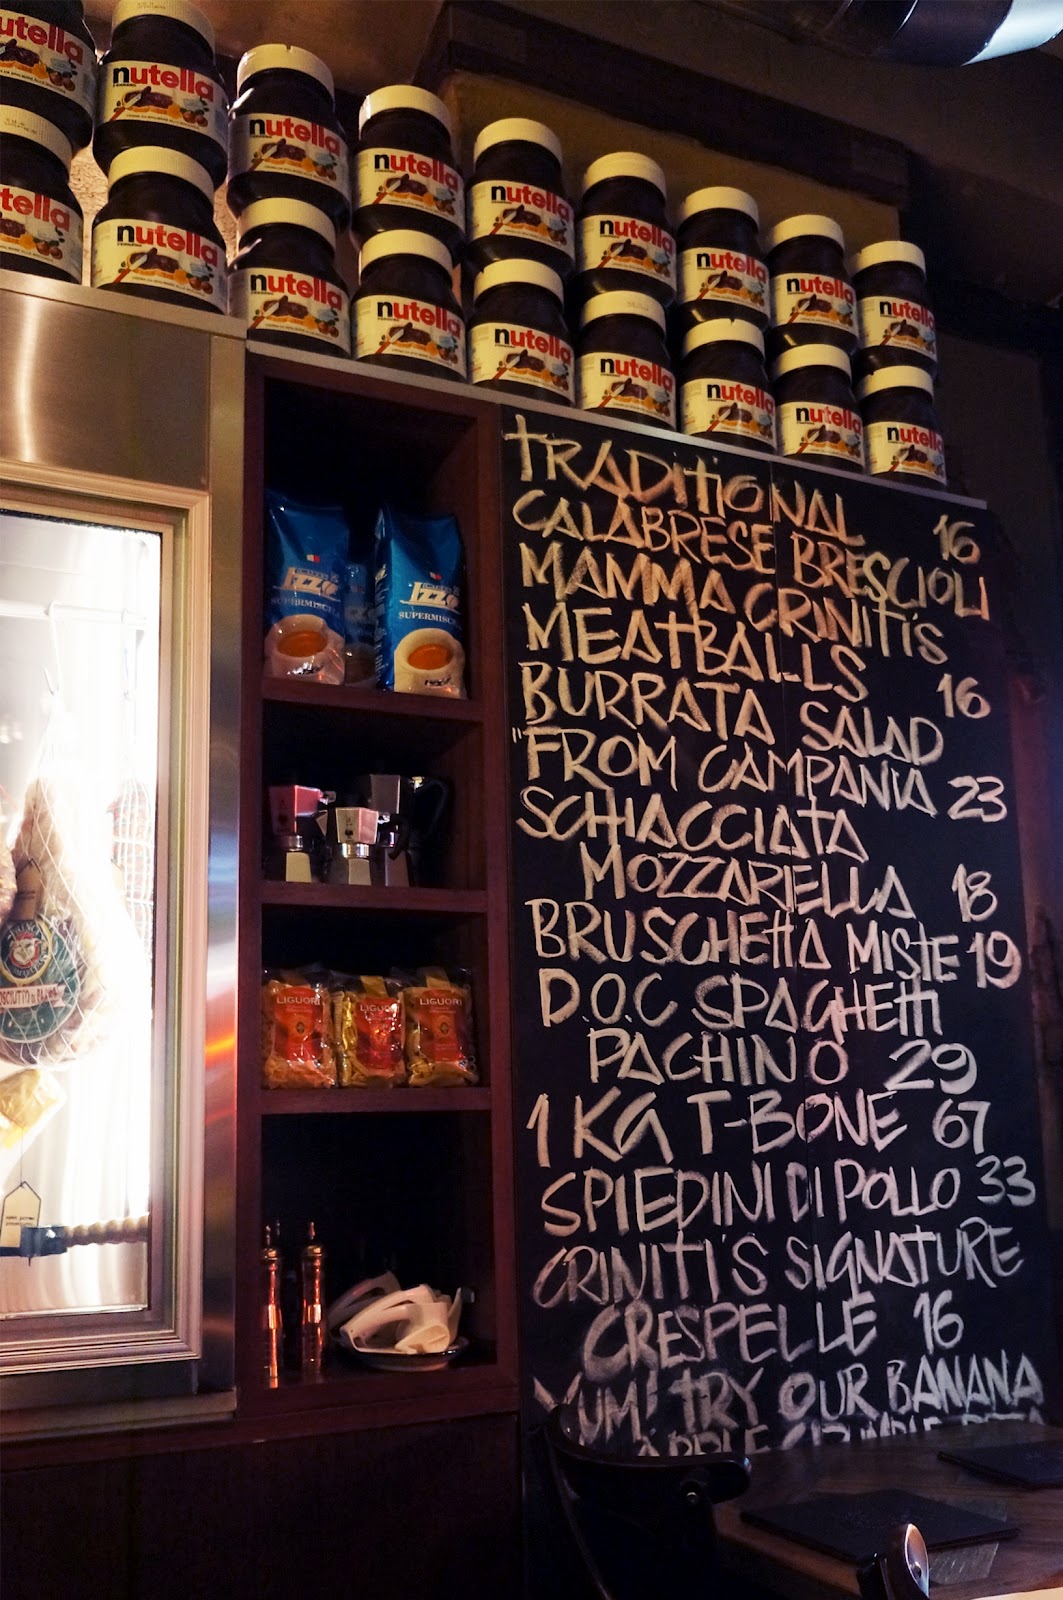 nutella nutella nutella nutella nutella nutella nutella nutella nutella
nutella nutella nutella nutella nutella nutella nutella nutella nutella
TRADITIONAL
CALABRESE BRESCIOLI 16
MAMMA CRINITI'S
MEATBALLS 16
BURRATA SALAD
"FROM CAMPANIA 23
SCHIACCIATA
MOZZARELLA 18
BRUSCHETTA MISTE 19
D.O.C SPAGHETTI
PACHINO 29
1 KG T-BONE 67
SPIEDINI DI POLLO 33
CRINITI'S SIGNATURE
CRESPELLE 16
YUM! TRY OUR BANANA
APPLE CRUMBLE PIZZA
Izzo
SUPERMISCELA
Izzo
SUPERMISCELA
LIGUORI LIGUORI LIGUORI